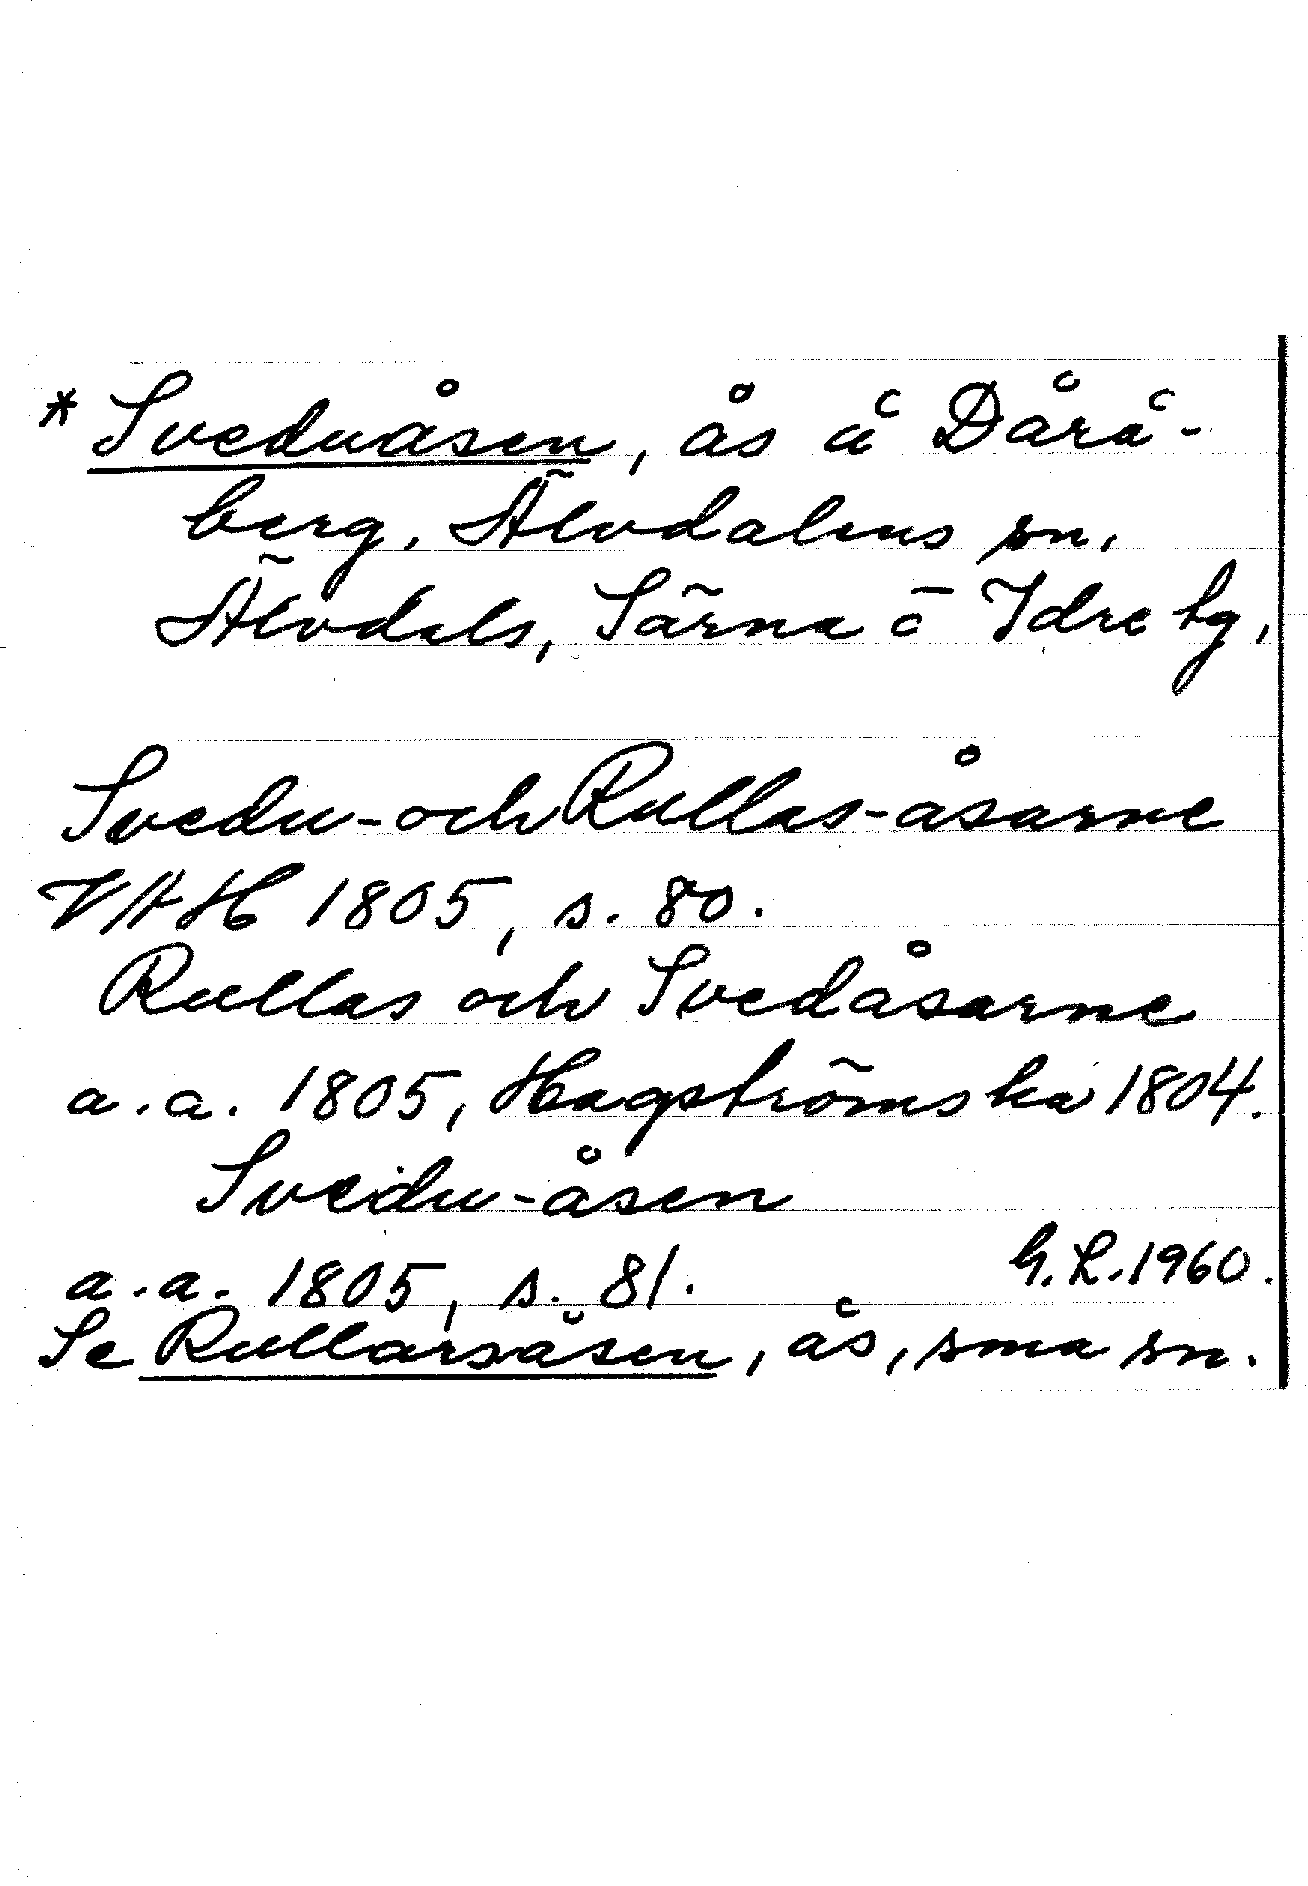 * Sveduåsen, ås å Dårå-
berg, Älvdalens sn,
Älvdals, Särna o Idre tg,
Svedu-och Rullas-åsarne
VAH 1805, s. 80.
Rullas och Svedåsarne
a.a. 1805, Hagströmska 1804.
Svedu-åsen
a.a. 1805, s. 81.
G.L.1960.
Se Rullarsåsen, ås, sma sn.